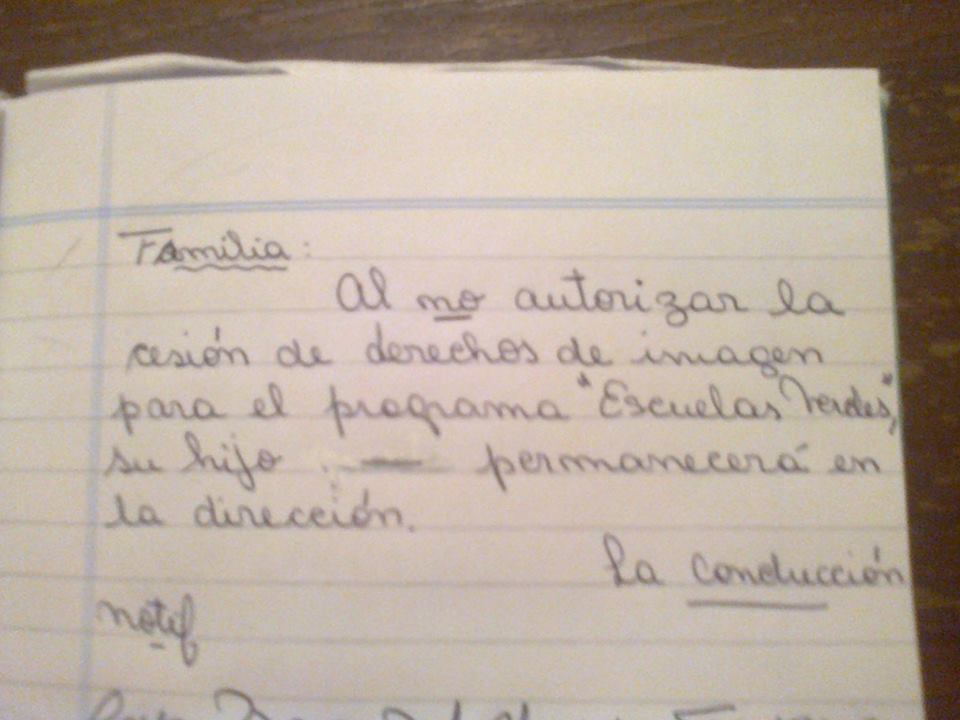 Familia:
Al no autorizar la
cesión de derechos de imagen
para el programa "Escuelas Verdes",
su hijo — permanecerá en
la dirección.
La Conducción
notif